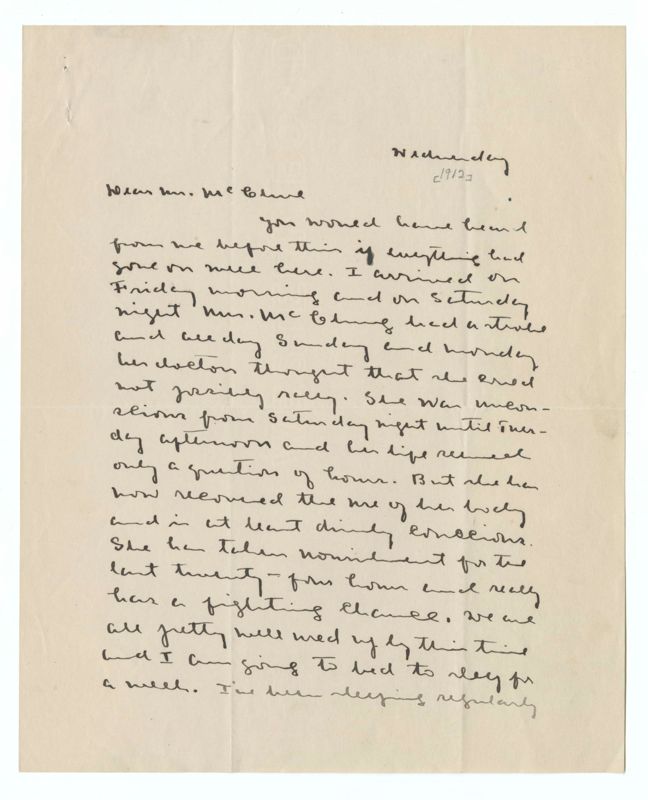 Wednesday
[1912]
Dear Mr. McClure
You would have heard
from me before this if everything had
gone on well here. I arrived on
Friday morning and on Saturday
night Mrs. McClung had a stroke
and all day Sunday and Monday
her doctors thought that she could
not possibly rally. She was uncon-
scious from Saturday night until Tues-
day afternoon and her life seemed
only a question of hours. But she has
now recovered the use of her body
and is at least dimly conscious.
She has taken nourishment for the
last twenty-four hours and really
has a fighting chance. We are
all pretty well used up by this time
and I am going to bed to sleep for
a week. I've been sleeping regularly